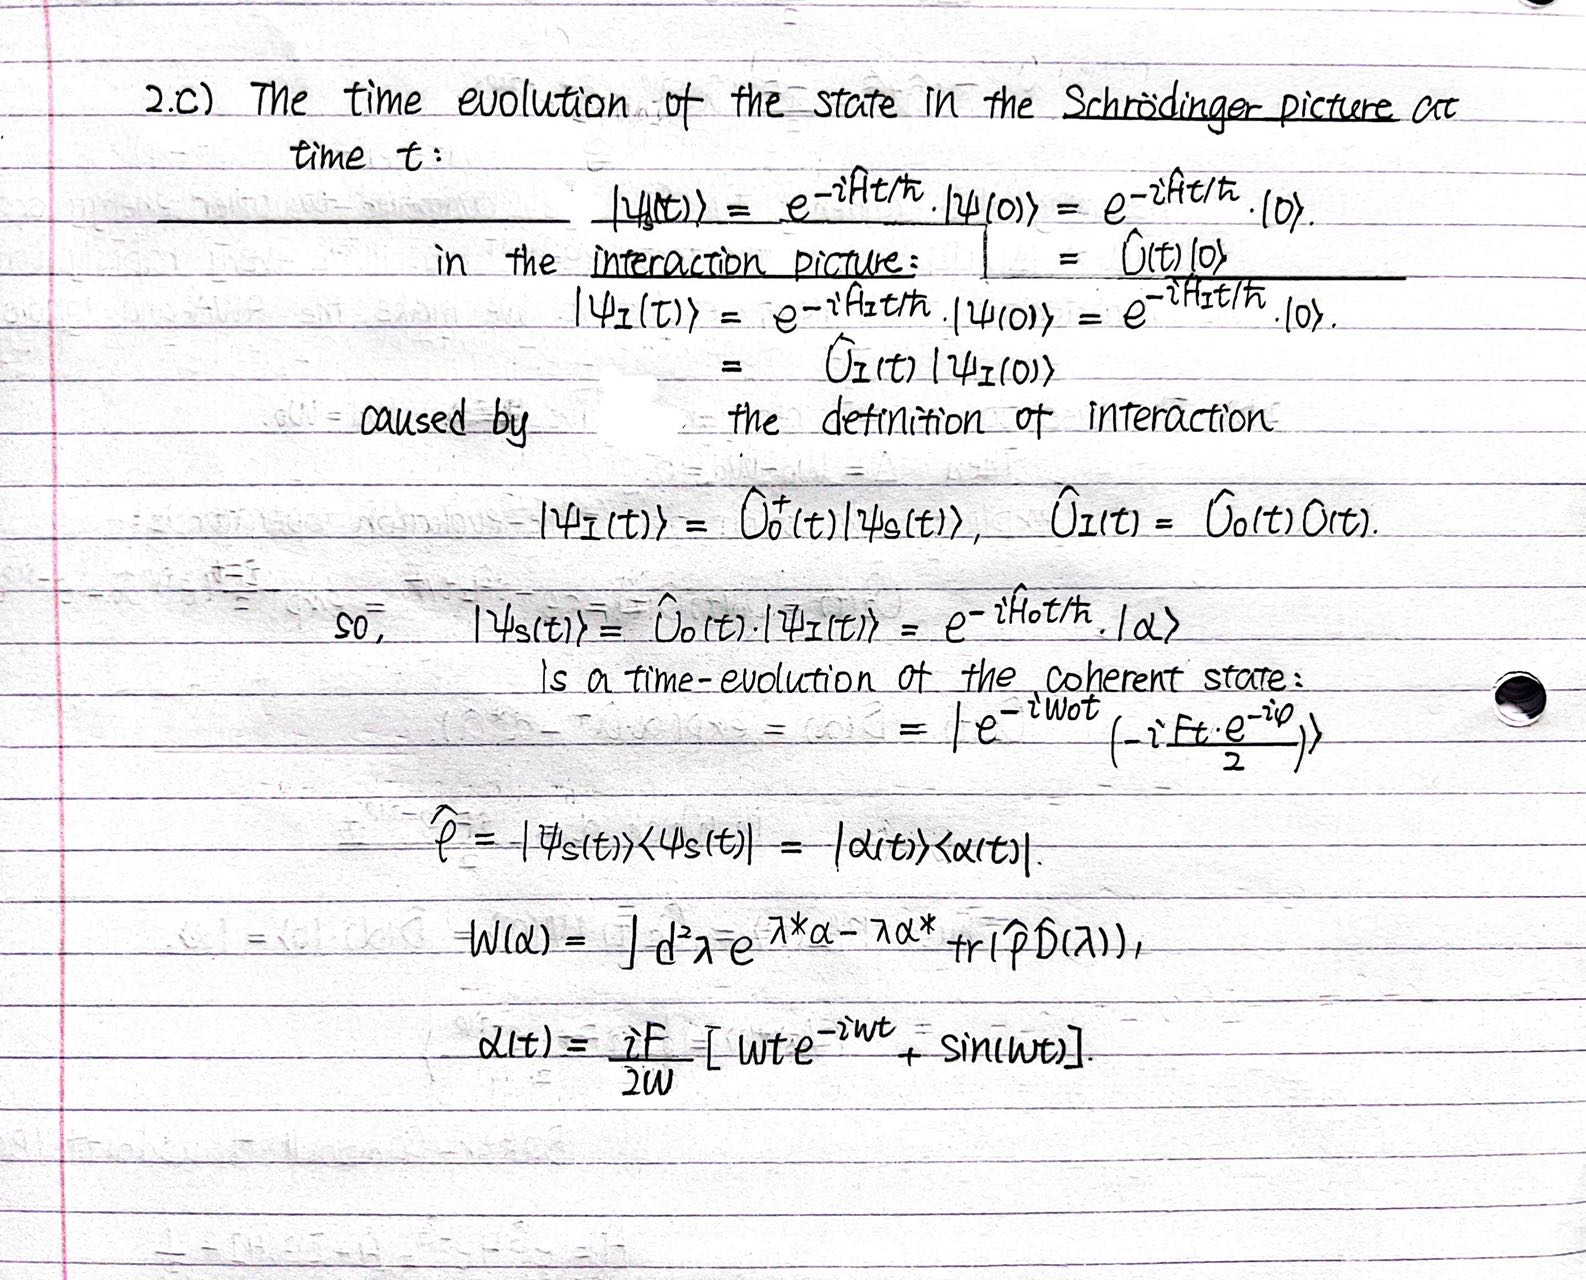 2.c) The time evolution of the state in the Schrödinger picture at
time t:
|ψs(t)⟩ = e^{-iĤt/ħ}·|ψ(0)⟩ = e^{-iĤt/ħ}·|0⟩.
= Û(t)|0⟩
in the interaction picture:
|ψI(t)⟩ = e^{-iĤIt/ħ}·|ψ(0)⟩ = e^{-iĤIt/ħ}·|0⟩.
= ÛI(t)|ψI(0)⟩
caused by the definition of interaction
|ψI(t)⟩ = Û0†(t)|ψs(t)⟩, ÛI(t) = Û0(t)Û(t).
so, |ψs(t)⟩ = Û0(t)·|ψI(t)⟩ = e^{-iĤ0t/ħ}·|α⟩
is a time-evolution of the coherent state:
= |e^{-iω0t} (-i Ft·e^{-iφ}/2)⟩
ρ̂ = |ψs(t)⟩⟨ψs(t)| = |α(t)⟩⟨α(t)|.
W(α) = ∫ d²λ e^{λ*α - λα*} tr(ρ̂D̂(λ)),
α(t) = iF/2ω [ωte^{-iωt} + sin(ωt)].